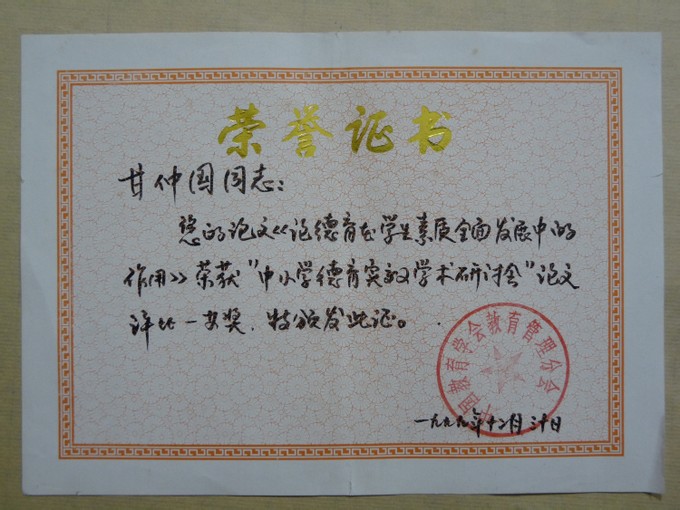 荣誉证书
甘仲国同志：
您的论文《论德育在学生素质全面发展中的
作用》荣获"中小学德育实效学术研讨会"论文
评比一等奖，特颁发此证。
中国教育学会教育管理分会
一九九九年十二月二十日